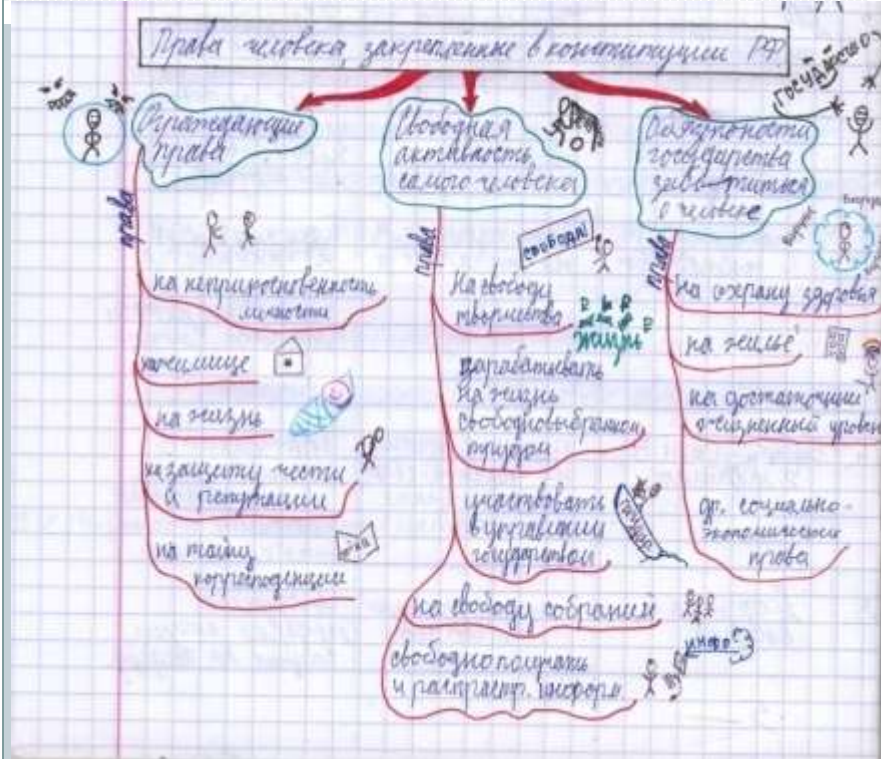 Права человека, закреплённые в конституции РФ
Ограждающие
права
права
на неприкосновенность
личности
на жилище
на жизнь
на защиту чести
и репутации
на тайну
корреспонденции
Свободная
активность
самого человека
права
СВОБОДА!
на свободу
творчества
жизнь
зарабатывать
на жизнь
свободно выбранным
трудом
участвовать
в управлении
государством
на свободу собраний
инфо
свободно получать
и распростр. информ.
ГОСУДАРСТВО
Обязанности
государства
заботиться
о человеке
права
Вирус
Вирус
на охрану здоровья
на жильё
на достаточный
жизненный уровень
др. социально-
экономические
права